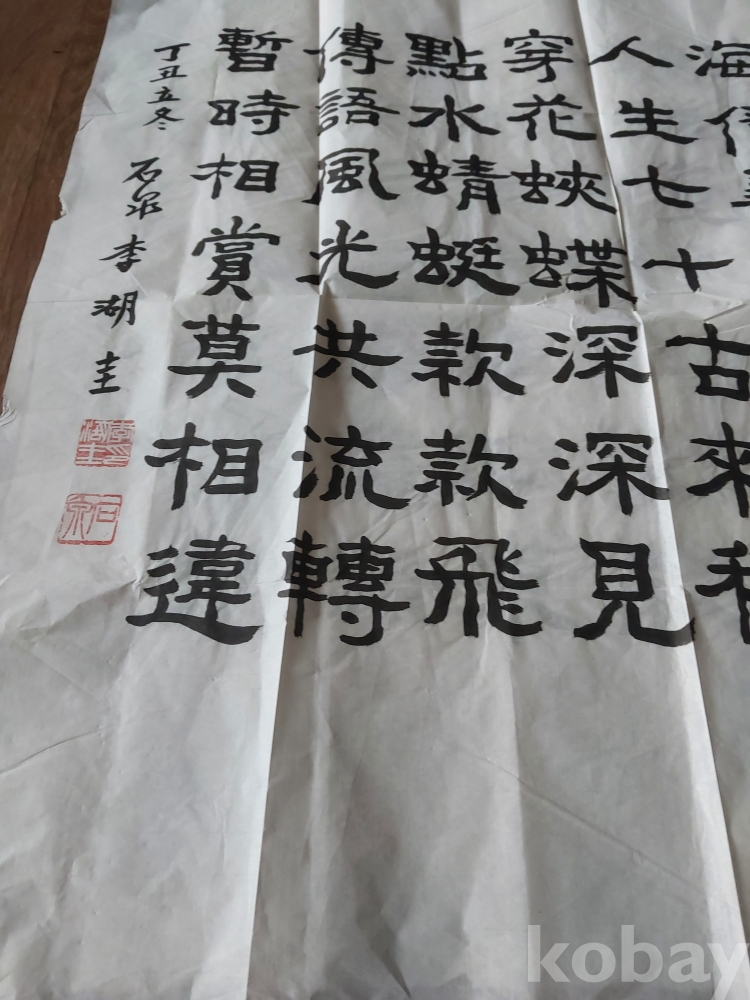 人生七十古來
穿花蛺蝶深深見
點水蜻蜓款款飛
傳語風光共流轉
暫時相賞莫相違
丁丑立冬 石泉 李湖圭
李印湖圭
石泉
kobay